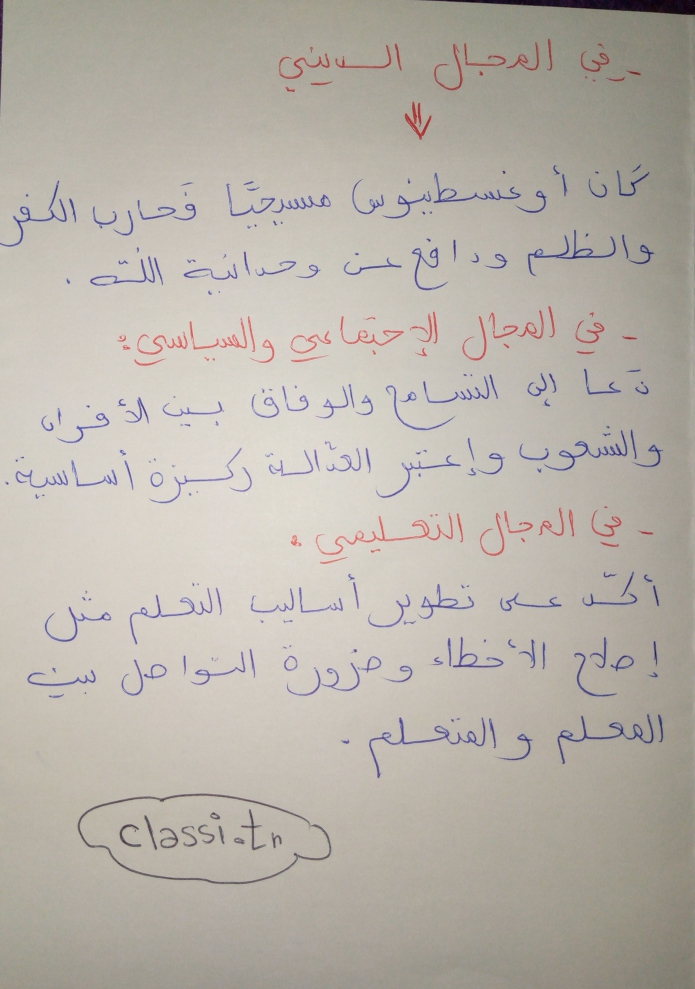 - في المجال الديني
كَان أوغسطينوس مسيحيًّا فَحارب الكفر
والظلم ودافع عن وحدانية اللّه .
- في المجال الإجتماعي والسياسي :
دَعا إلى التسامح والوفاق بين الأفراد
والشعوب وإعتبر العدالة ركيزة أساسية .
- في المجال التعليمي :
أكّد على تطوير أساليب التعلم مثل
إصلاح الأخطاء وضرورة التواصل بين
المعلم والمتعلم .
classi.tn